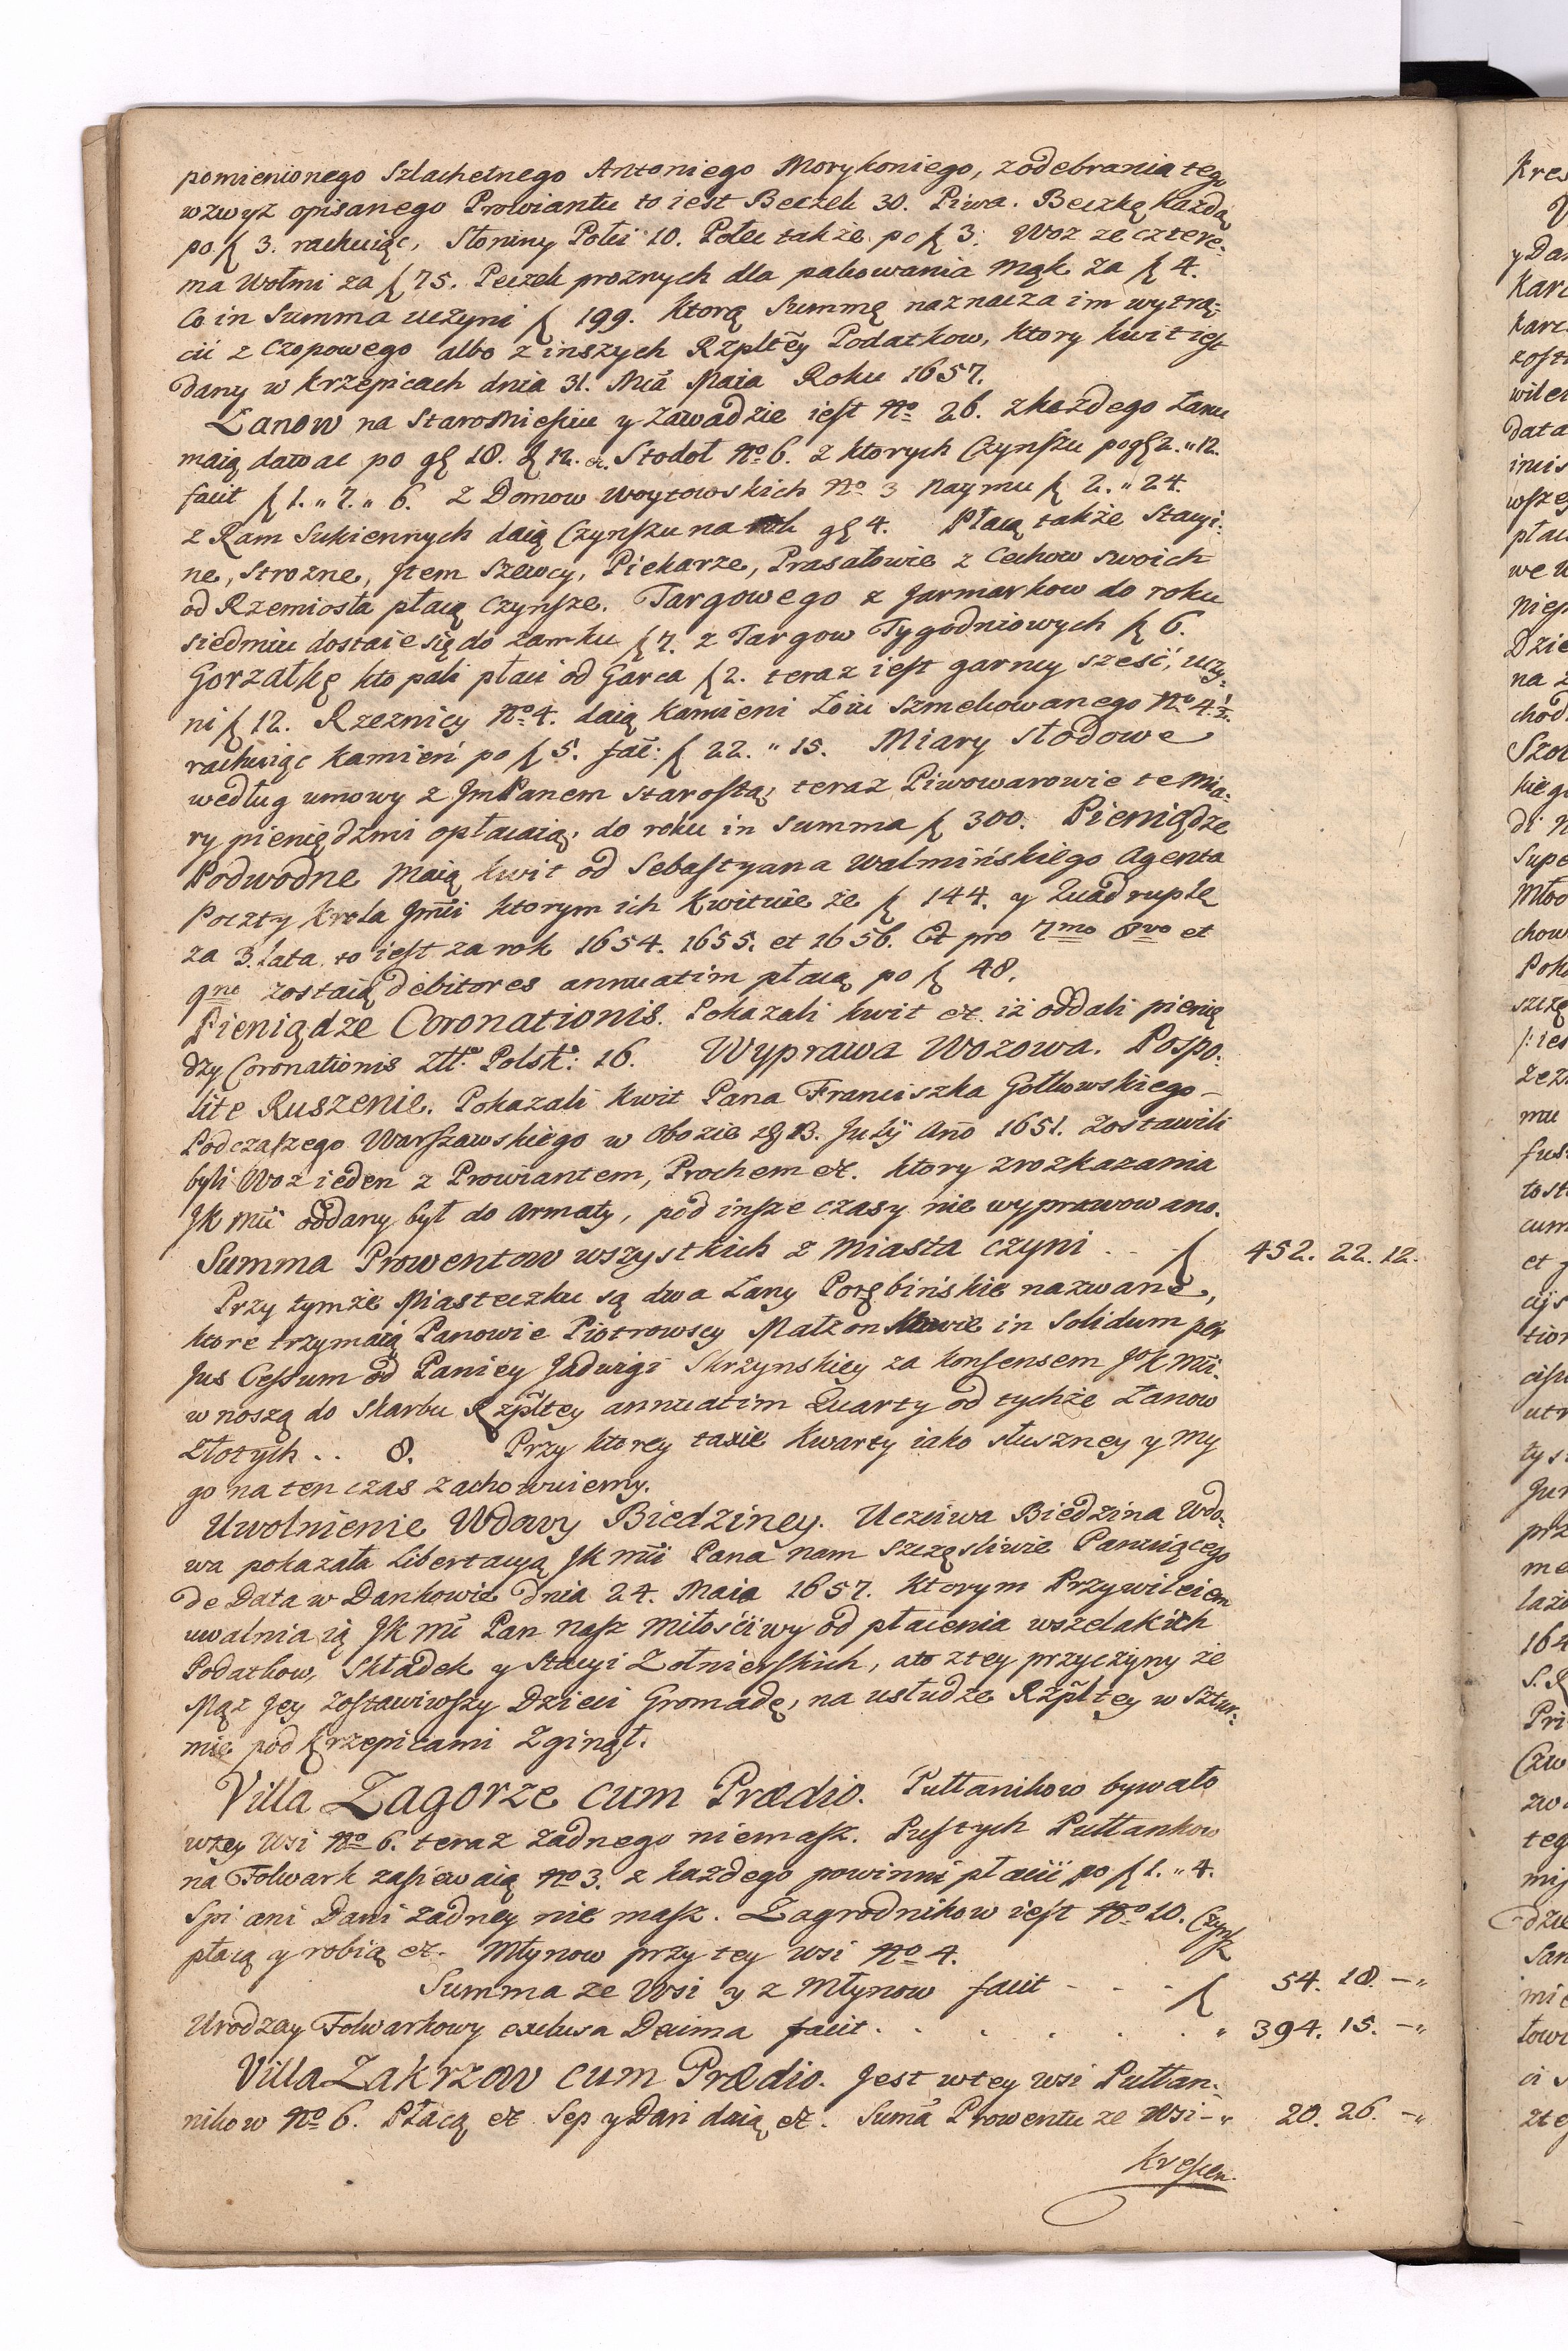 pomienionego Szlachetnego Antoniego Morykoniego, z odebrania tego
wzwyż opisanego Prowiantu to iest Beczek 30. Piwa. Beczkę każdą
po f 3. rachuiąc, Słoniny Połci 10. Połeć także po f 3. Woz ze cztere-
ma Wołmi za f 75. Beczek proznych dla pakowania Mąk za f 4.
Co in Summa uczyni f 199. ktorą Summę naznacza im wytrą-
cić z Czopowego albo z inszych Rzpltey Podatkow, ktory kwit iest
dany w Krzepicach dnia 31. Mca Maia Roku 1657.
Łanow na Staromieściu y Zawadzie iest No 26. z każdego Łanu
maią dawać po gr 18. d 12. Stodoł No 6. z ktorych Czynszu po gr 2. " 12.
facit f 1. " 7. " 6. z Domow Woytowskich No 3 Naymu f 2. " 24.
z Ram Sukiennych daią Czynszu na rok gr 4. Płacą także Stacyi-
ne, Strozne, Item Szewcy, Piekarze, Prasałowie z Cechow swoich
od Rzemiosła płacą czynsze. Targowego z Jarmarkow do roku
siedmiu dostaie się do zamku f 7. z Targow Tygodniowych f 6.
Gorzałkę kto pali płaci od Garca f 2. teraz iest garncy sześć, uczy-
ni f 12. Rzeznicy No 4. daią kamieni Łoiu szmelcowanego No 4 1/2.
rachuiąc kamień po f 5. fac: f 22. " 15. Miary Słodowe
według umowy z JmPanem Starostą, teraz Piwowarowie te Mia-
ry pieniędzmi opłacaią, do roku in summa f 300. Pieniądze
Podwodne Maią kwit od Sebastyana Walmińskiego Agenta
Poczty Krola Jmci ktorym ich kwituie ze f 144. y Quadruplę
za 3. Lata to iest za rok 1654. 1655. et 1656. Et pro 7mo 8vo et
9no zostaią debitores annuatim płacą po f 48.
Pieniądze Coronationis. Pokazali kwit etc. iż oddali pienię
dzy Coronationis Złł. Polsk: 16. Wyprawa Wozowa. Pospo-
lite Ruszenie. Pokazali kwit Pana Franciszka Gołkowskiego
Podczaszego Warszawskiego w Obozie 13. Julij Ano 1651. Zostawili
byli Woz ieden z Prowiantem, Prochem etc. ktory z rozkazania
JK Mci oddany był do Armaty, pod insze czasy nie wyprawowano.
Summa Prowentow wszystkich z Miasta czyni . . f 452. 22. 12.
Przy tymże Miasteczku są dwa Łany Porębińskie nazwane,
ktore trzymaią Panowie Piotrowscy Małżonkowie in Solidum per
Jus Cessum od Paniey Jadwigi Skrzynskiey za konsensem JoK Mci.
wnoszą do Skarbu Rzpltey annuatim Quarty od tychże Łanow
Złotych . . 8. Przy ktorey taxie kwarty iako słuszney y My
go na ten czas zachowuiemy.
Uwolnienie Wdowy Biedziney. Uczciwa Biedzina Wdo-
wa pokazała Libertacyą JK Mci Pana nam szczęśliwie Panuiącego
de Data w Dankowie dnia 24. Maia 1657. ktorym Przywileiem
uwalnia ią JK Mć Pan nasz Miłościwy od płacenia wszelakich
Podatkow, Składek y Stacyi Zołnierskich, a to z tey przyczyny że
Mąż Jey zostawiwszy Dzieci Gromadę, na usłudze Rzpltey w Sztur-
mie pod Krzepicami Zginął.
Villa Zagorze cum Prædio. Pułłanikow bywało
w tey Wsi No 6. teraz żadnego niemasz. Pustych Pułłankow
na Folwark zasiewaią No 3. z każdego powinni płacić po f 1. " 4.
Spi ani Dani żadney nie masz. Zagrodnikow iest No 10. Czynsz
płacą y robią etc. Młynow przy tey Wsi No 4.
Summa ze Wsi y z Młynow facit - - - f 54. 18. -"
Urodzay Folwarkowy exclusa Decima facit . . . . . . " 394. 15. -"
Villa Zakrzow cum Prædio. Jest w tey wsi Pułłan-
nikow No 6. Płacą etc Sep y Dań daią etc. Suma Prowentu ze Wsi -" 20. 26. -"